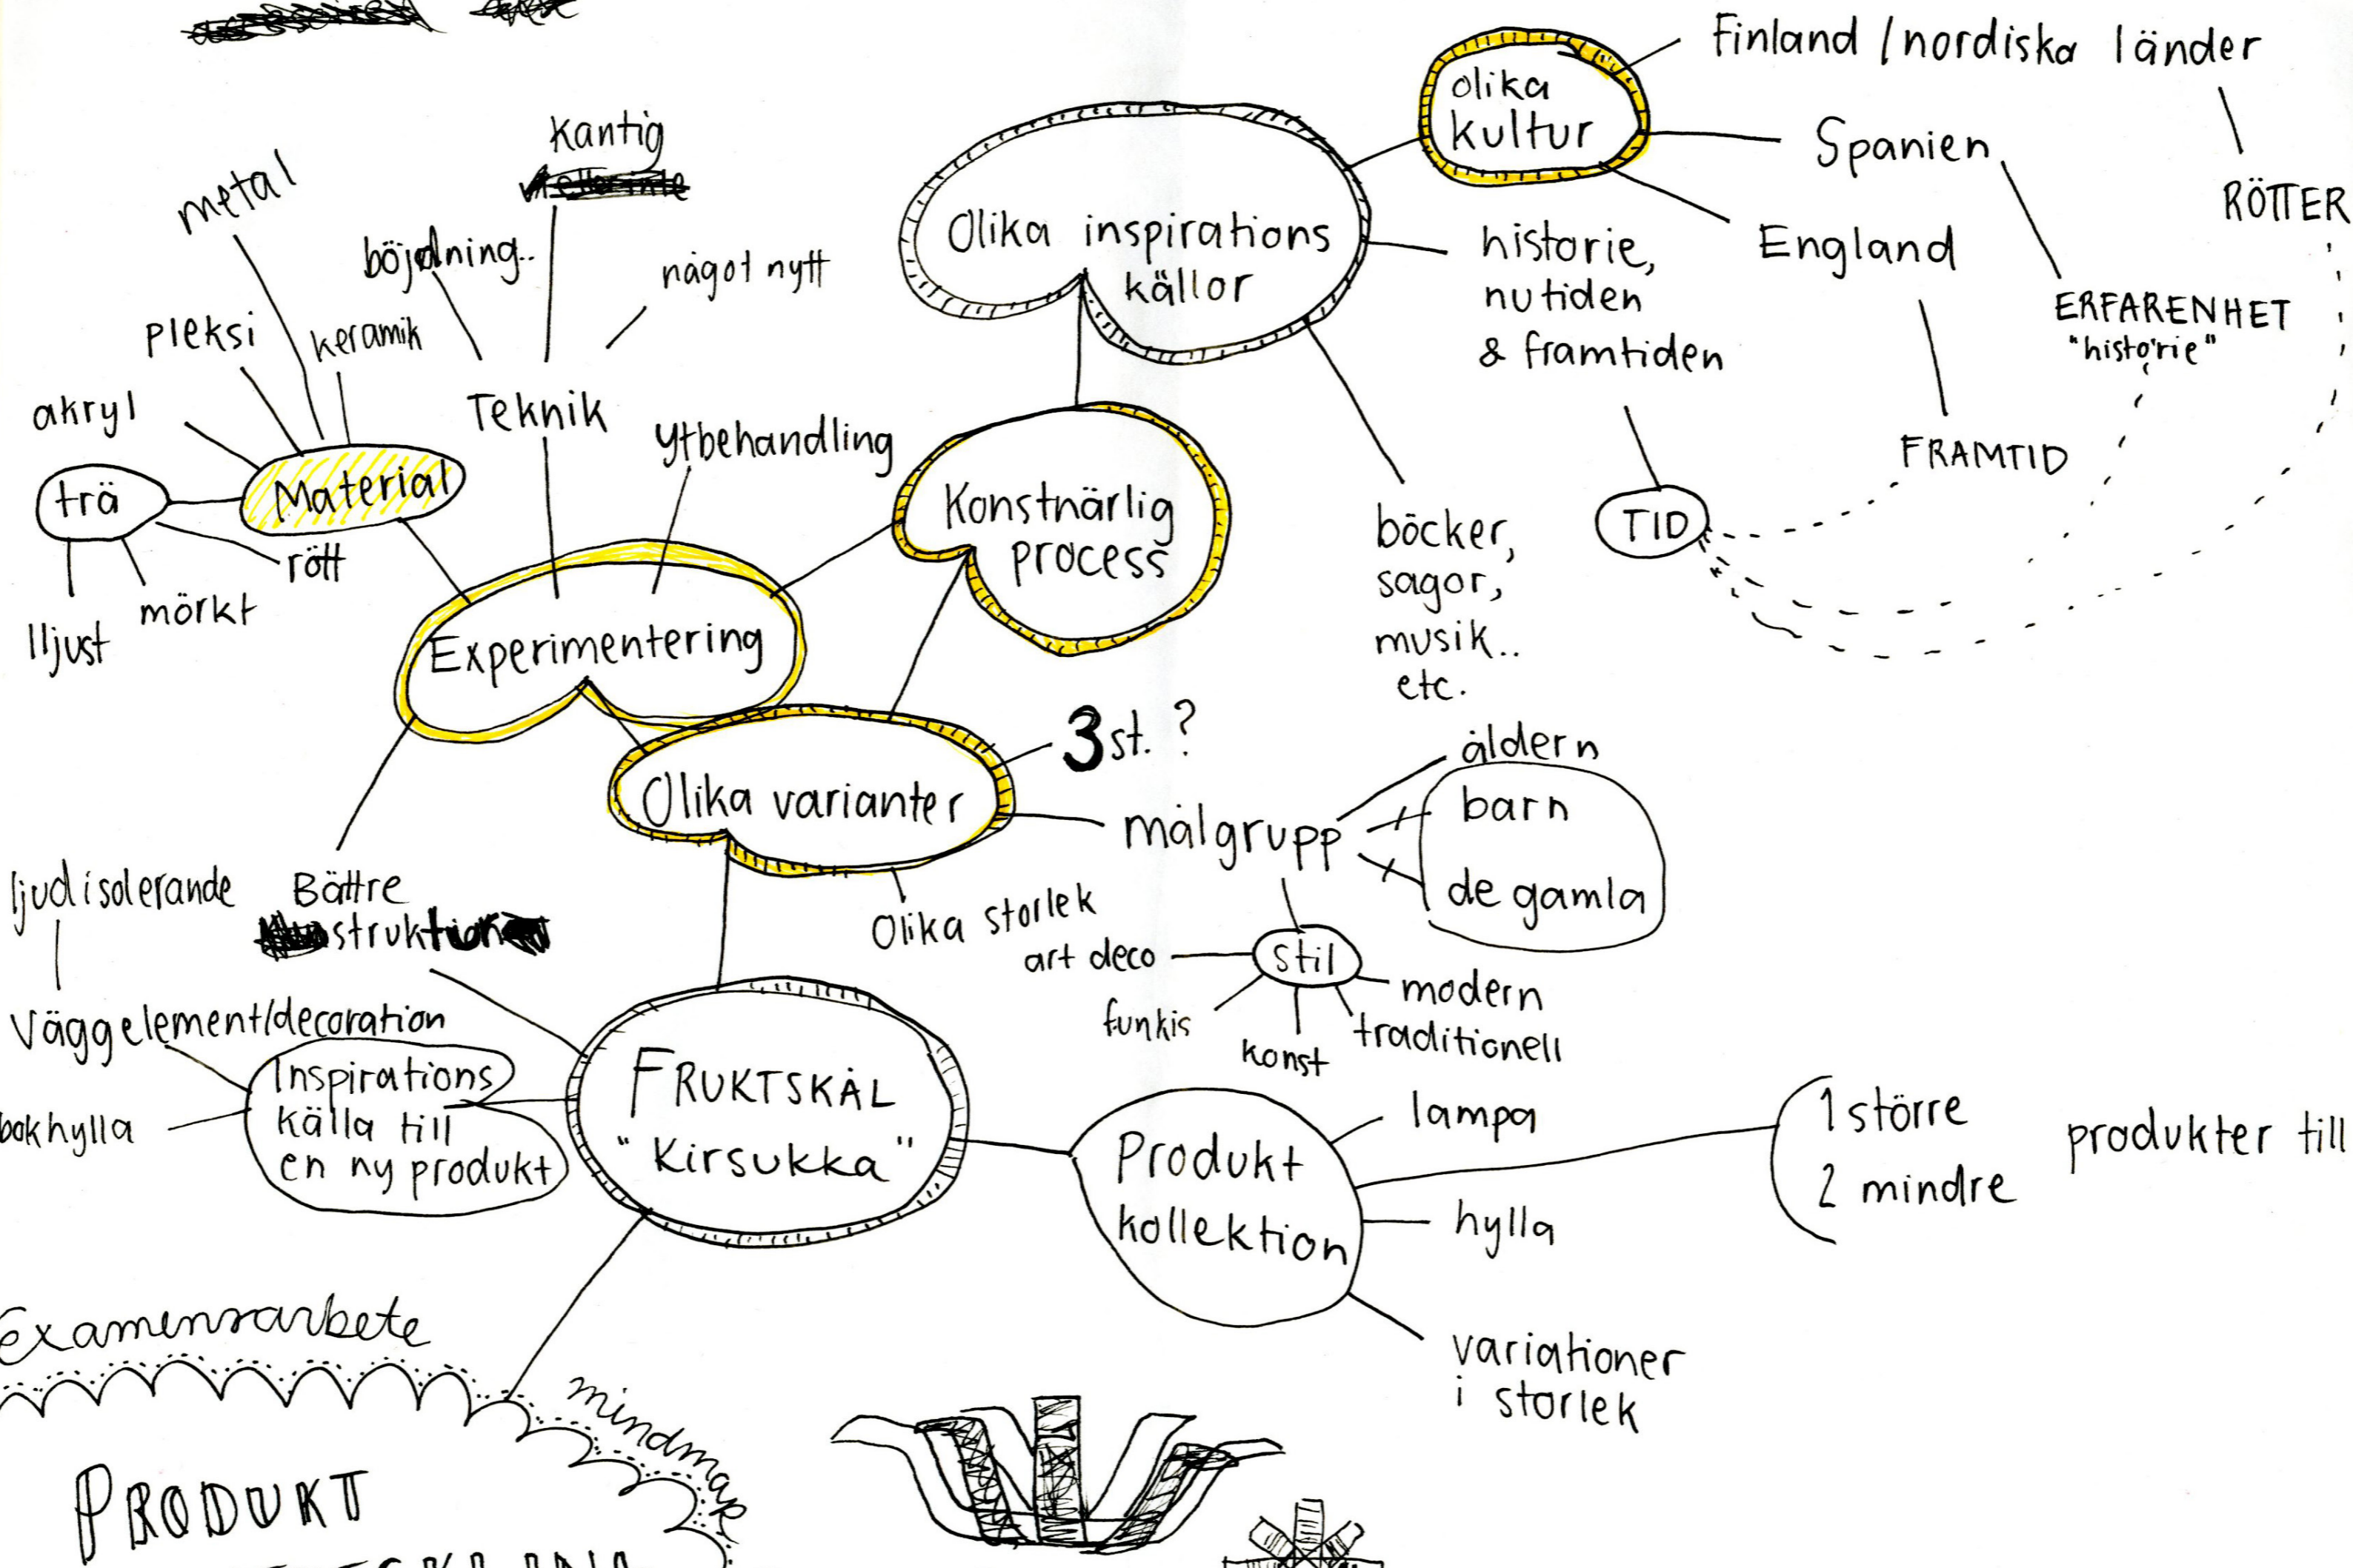 Finland / nordiska länder
olika
kultur
Spanien
RÖTTER
England
ERFARENHET
"historie"
FRAMTID
TID
Olika inspirations
källor
historie,
nutiden
& framtiden
böcker,
sagor,
musik..
etc.
Kantig
metal
böjdning..
något nytt
pleksi
keramik
akryl
Teknik
ytbehandling
trä
Material
rött
mörkt
lljust
Konstnärlig
process
Experimentering
Olika varianter
3 st. ?
målgrupp
åldern
barn
de gamla
Olika storlek
stil
art deco
funkis
konst
modern
traditionell
ljudisolerande
Bättre
struktion
Väggelement/decoration
Inspirations
källa till
en ny produkt
bokhylla
FRUKTSKÅL
"Kirsukka"
Produkt
kollektion
lampa
1 större
2 mindre
produkter till
hylla
variationer
i storlek
Examensarbete
mindmap
PRODUKT